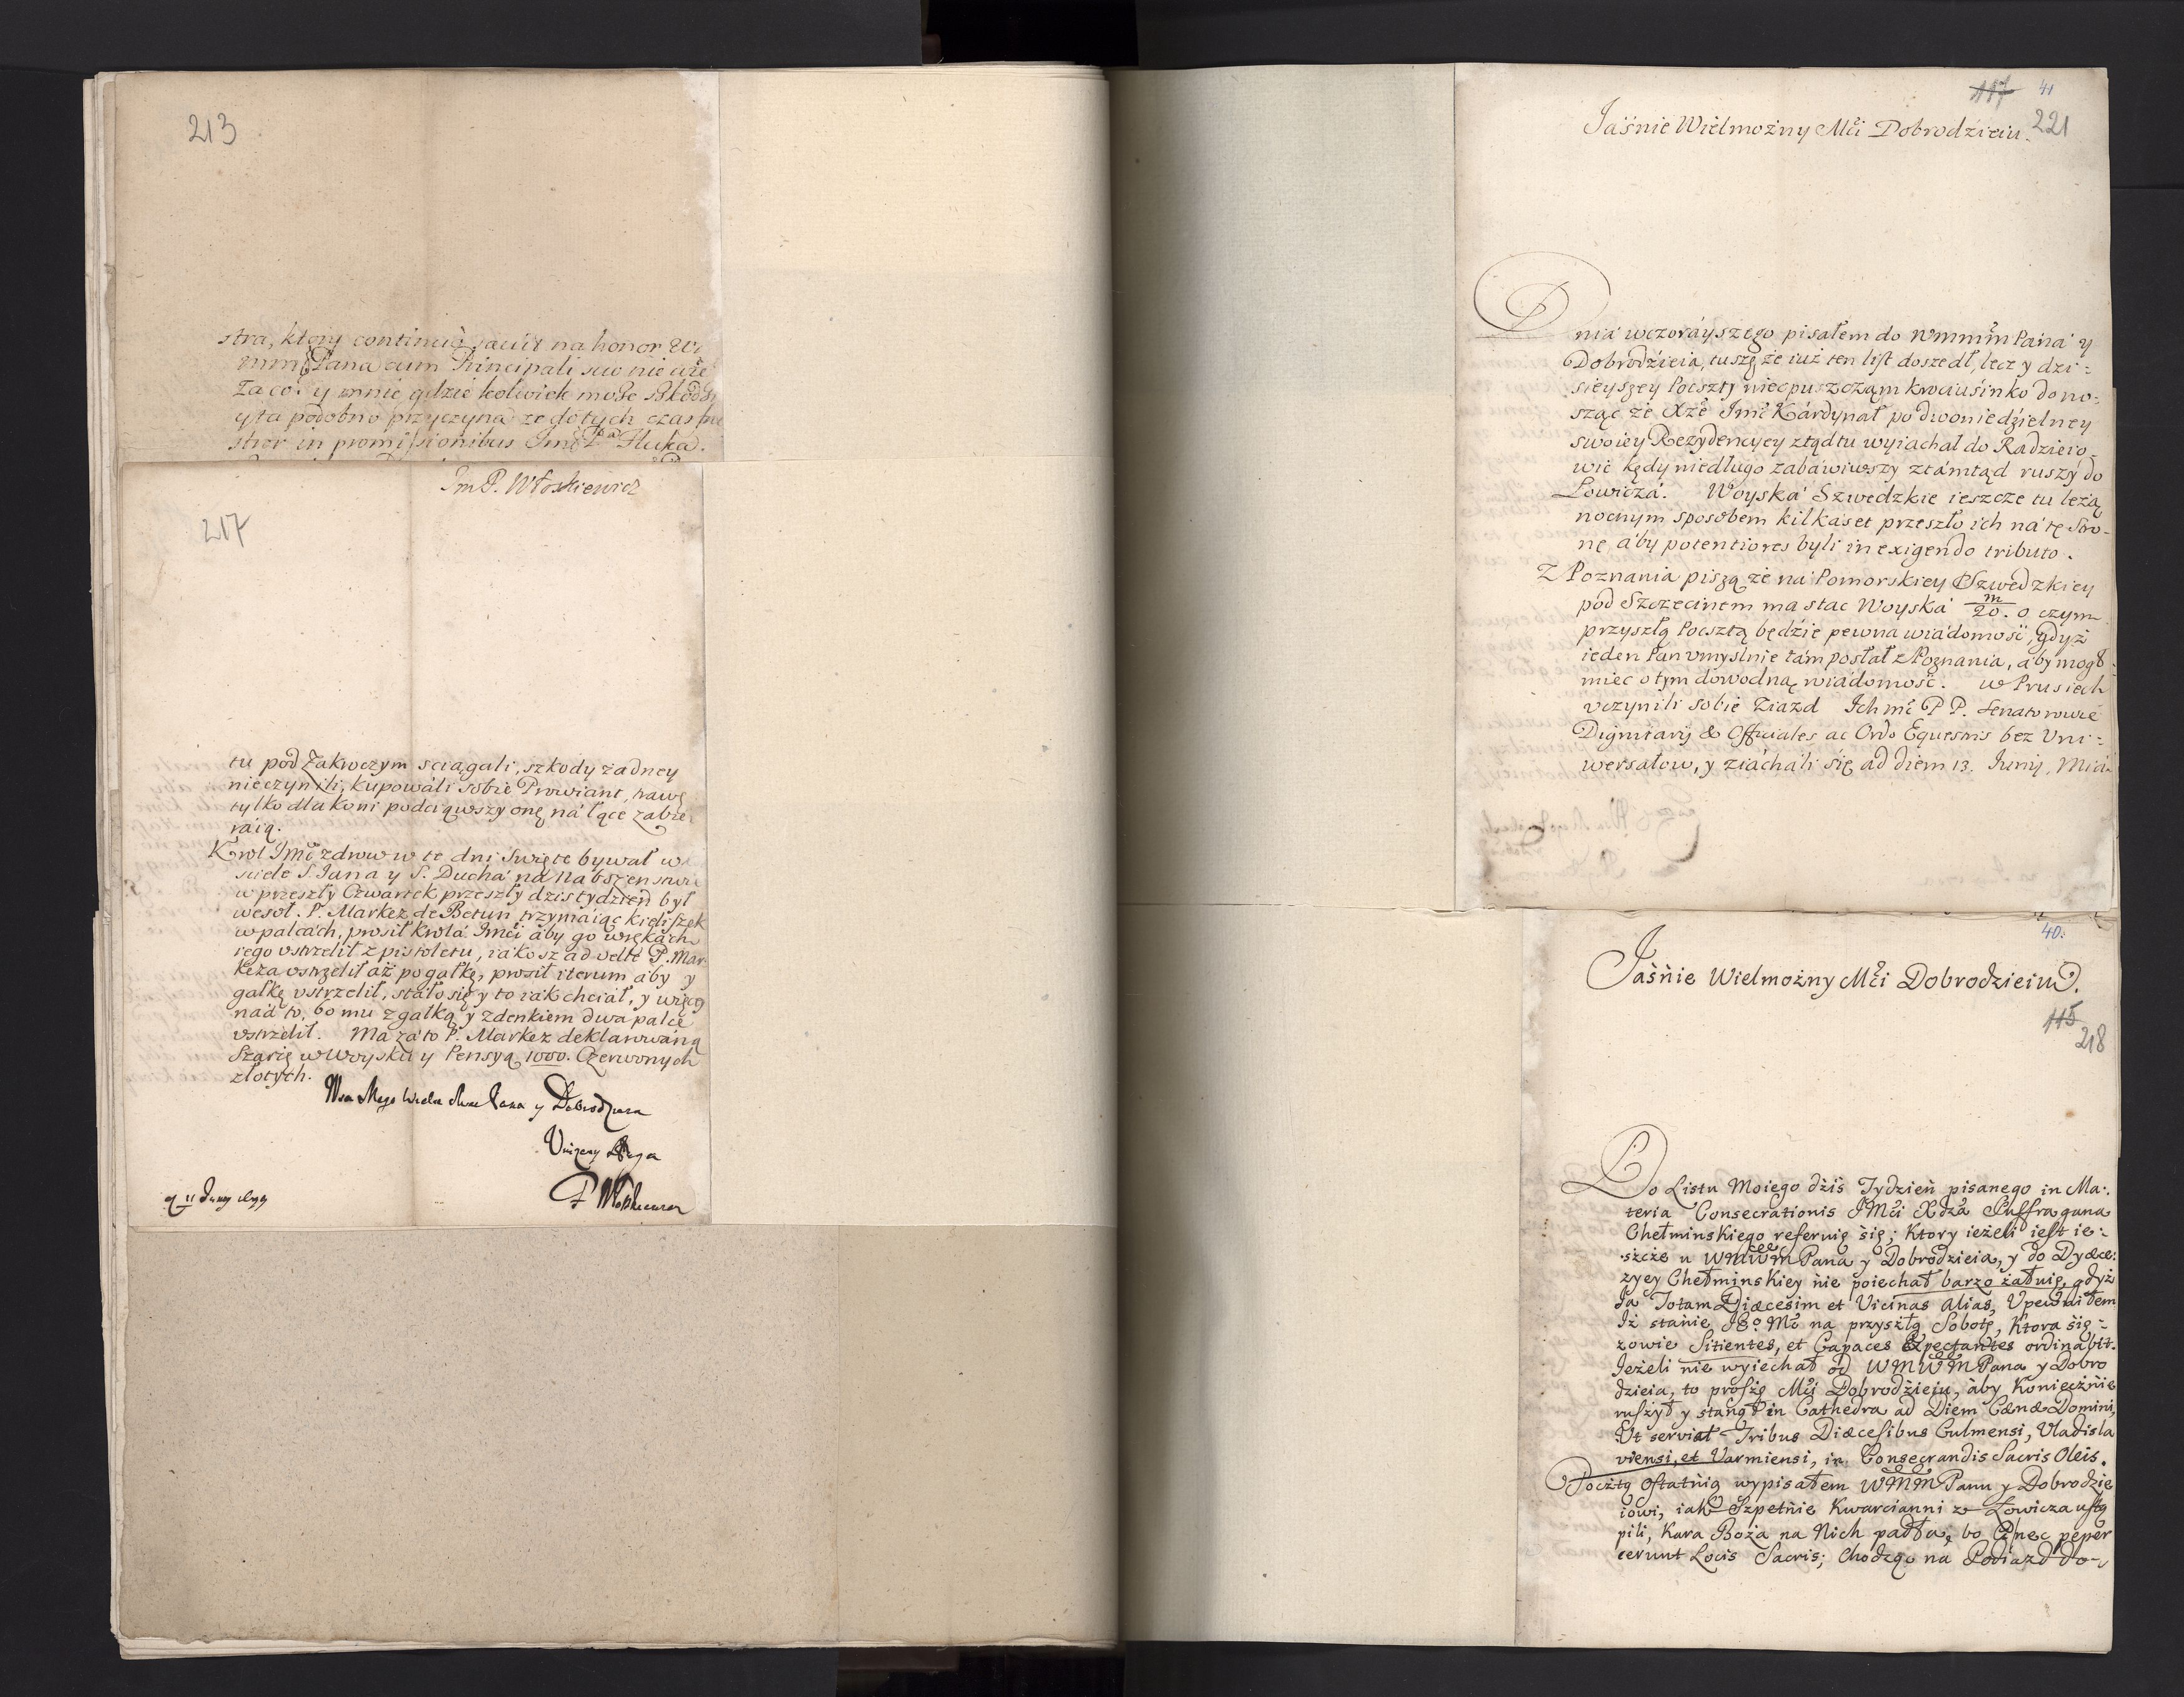 213
stra, ktory continuo sauit na honor W
mmP Pana cum Principali suo nie
za co y mnie gdzie kolwiek może szkodz
y ta podobno przyczyna ze dotych czas
in promissionibus Imci Pa Flucka.
Im P. Włoskiewicz
217
tu pod Zakroczym sciągali, szkody żadney
nieczynili, kupowáli sobie Prowiant, trawę
tylko dla koni podciąwszy onę ná łące zabie
raią.
Krol Jmć zdrow w te dni swięte bywał w
sciele S. Jana y S. Duchá ná Nabozenstwie
w przeszły Czwartek przeszły dzis tydzien był
wesoł. P. Markez de Betun trzymáiąc kieliszek
w palcách, prosił Krolá Imci áby go w rękách
iego vstrzelił z pistoletu, iákosz ad velle P. Mar
keza vstrzelił aż po gałkę, prosił iterum aby y
gałkę vstrzelił, stáło się y to iák chciał, y więcey
nád to, bo mu z gałką y z denkiem dwa palce
vstrzelił. Ma zá to P. Markez deklarowáną
Szarzę w Woysku y Pensyą 1000. Czerwonych
złotych.
Wm Mego Wielce Mnie Pana y Dobrodzieia
Unizony Sługa
P Włoskiewicz
117 41
Jáśnie Wielmożny Mći Dobrodźieiu. 221
Dniá wczoráyszego pisałem do Wmmm Páná y
Dobrodźieia, tuszę że iuż ten list doszedł, lecz y dzi=
sieyszey Poczty nieopuszczám krociusinko dono=
sząc że Xże Jmć Kárdynał po dwoniedźielney
swoiey Rezydencyey ztąd tu wyiachał do Radzieio=
wic kędy niedługo zabáwiwszy ztámtąd ruszy do
Łowiczá. Woyská Szwedzkie ieszcze tu leżą
nocnym sposobem kilkaset przeszło ich ná tę stro=
nę, áby potentiores byli in exigendo tributo.
Z Poznania piszą że ná Pomorskiey Szwedzkiey
pod Szczecinem ma stac Woyská m/20. o czym
przyszłą Pocztą będzie pewna wiádomość, gdyż
ieden Pan vmyslnie tám posłał z Poznania, áby mogł
miec o tym dowodną wiádomość. w Prusiech
vczynili sobie Ziazd Ich mć P P. Senatorowie
Dignitarij & Officiales ac Ordo Equestris bez Uni=
wersałow, y ziácháli się ad diem 13. Junij, Miá
40.
Jaśńie Wielmożny Mći Dobrodzieiu.
115
218
Do Listu Moiego dźiś Tydzień pisanego in Ma:
teria Consecrationis JMći Xdza Suffragana
Chełminskiego referuię się; Ktory ieżeli iest ie:
szcze u WMWM Pana y Dobrodzieia, y do Dyæce:
zyey Chełminskiey ńie poiechał barzo żałuię, gdyż
Ja Totam Diæcesim et Vicinas alias, Upewńiłem
Iż stańie JEo Mć na przyszłą Sobotę, Ktora się=
zowie Sitientes, et Capaces Expectantes ordinabit.
Jeżeli nie wyiechał od WMWM Pana y Dobro
dzieia, to proszę Mći Dobrodżieiu, aby Koniecżńie
ruszył y stanął in Cathedra ad Diem Cænæ Domini,
Ut serviat Tribus Diæcesibus Culmensi, Vladisla
viensi, et Varmiensi, in Consecrandis Sacris Oleis.
Pocżtą ostatńią wypisałem WMM Panu y Dobrodzie
iowi, iak Szpetńie Kwarcianni z Łowicza ustą
pili, Kara Boża na Nich padła, bo nec peper
cerunt Locis Sacris; Chodząc na Podiazd do-